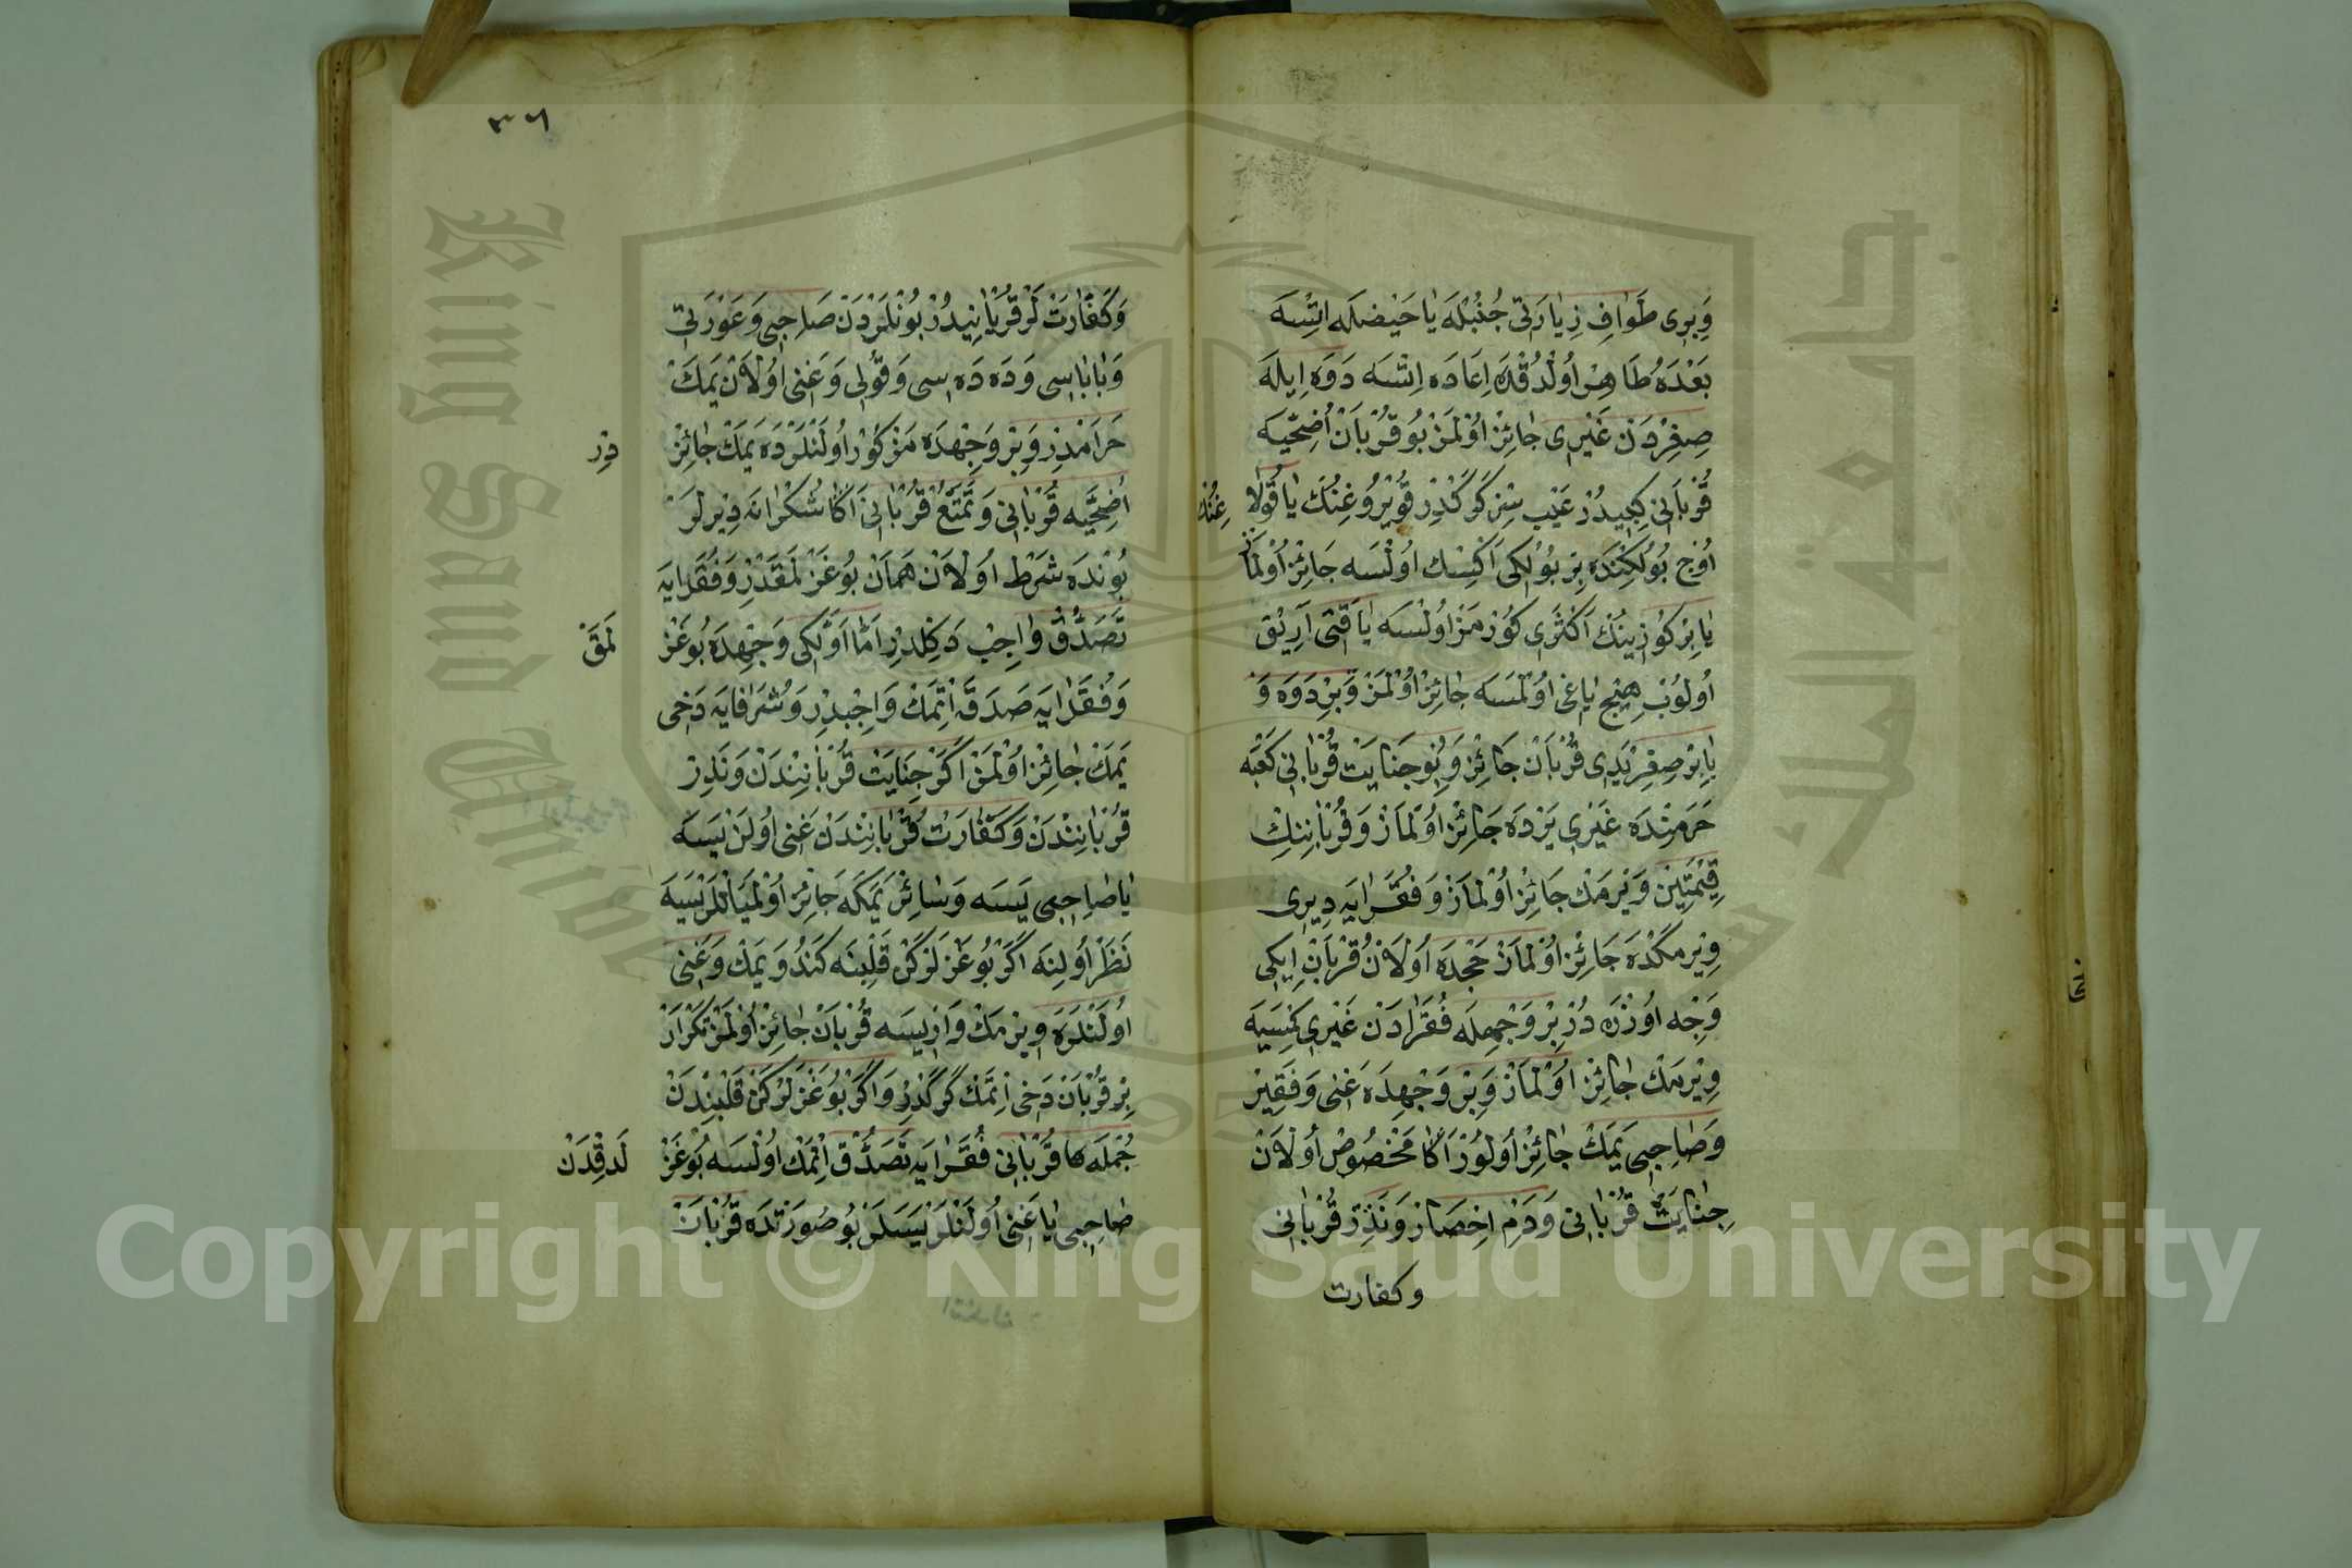 وَبِرِى طَوٰافِ زِيٰارَتِى جُنُبْلَهْ يٰا حَيْضلَه اِتْسَه
بَعْدَهُ طَاهِرْ اُولْدُقْدَه اِعَادَه اِتْسَه دَوَه اِيلَه
صِغِرْدَنْ غَيْرِى جٰائِزْ اوُلْمَزْ بُو قُرْبَانْ اُضْحِيَّه
قُرْبَانِى كِبِيدُرْ عَيْب سِزْ كَرَكْدِرْ قُوَيْرُوغِنُكْ يٰا قُولَا
غِنُكْ
اُوچ بُولُكِنْدَه بِرْ بُولُكِى اَكْسِكْ اوُلْسَه جَائِزْ اوُلْمَاز
يٰا بِرْ كُوزِينُكْ اَكْثَرِى كُورْمَزْ اوُلْسَه يٰا قَتِى اَرِيقْ
اُولُوبْ هِيچ ياٰغِى اوُلْمَسَه جٰائِزْ اوُلْمَزْ وَبِرْ دَوَه وَ
يٰا بِرْ صِغِرْ يَدِى قُرْبَانْ جَائِزْ وَبُو جَنَايَتْ قُرْبٰانِى كَعْبَه
حَرَمِنْدَه غَيْرِى يَرْدَه جَائِزْ اوُلْمَازْ وَقُرْبٰانِنِكْ
قِيمْتِينْ وَيْرمَكْ جَائِزْ اوُلْمَازْ وَفُقَرٰايَه دِيرِى
وِيْرمَكْدَه جَائِزْ اوُلْمَازْ حَجْدَه اُولَانْ قُرْبَانْ اِيكِى
وَجْه اوُزْرَه دُرْ بِرْ وَجْهِلَه فُقَرٰادَنْ غَيْرِى كِمْسَيَه
وِيْرمَكْ جٰائِزْ اوُلْمَازْ وَبِرْ وَجْهِدَه غَنِى وَفَقِيرْ
وَصَاحِبِى يَمَكْ جٰائِزْ اُولُورْ اَكَا مَخْصُوصْ اُولَانْ
جِنٰايَتْ قُرْبٰانِى وَدَمِ اِحْصَارْ وَنَذِرْ قُرْبٰانِى
وكفارت
٣٦
وَكَفّٰارَتْ لَرْ قُرْبَانِيدُرْ بُونْلَرْدَنْ صَاحِبِى وَعَوْرَتِى
وَبٰابَاسِى وَدَه دَه سِى وَقُولِى وَغَنِى اوُلَانْ يَمَكْ
حَرَامْدِرْ وَبِرْ وَجِهْدَه مَزْكُورْ اُولَنْلَرْدَه يَمَكْ جٰائِزْ
دِرْ
اُضْحِيَّه قُرْبٰانِى وَتَمَتُّعْ قُرْبٰانِى اَكَا شُكْرَانَه دِيْرلَرْ
بُونْدَه شَرْط اوُلَانْ هَمَانْ بُوغَزْلَمَقْدِرْ وَفُقَرٰايَه
تَصَدُّقْ وٰاجِبْ دَكِلْدِرْ اَمّٰا اَوَّلْكِى وَجْهِدَه بُوغَزْ
لَمَقْ
وَفُقَرٰايَه صَدَقَه اِتِمَكْ وَاجِبْدِرْ وَشُرَفَايَه دَخِى
يَمَكْ جٰائِزْ اوُلْمَزْ اَكَرْ جِنَايَتْ قُرْبٰانِنْدَنْ وَنَذِرْ
قُرْبٰانِنْدَنْ وَكَفّٰارَتْ قُرْبٰانِنْدَنْ غَنِى اوُلَنْ يَسَه
يٰا صٰاحِبِى يَسَه وَسٰائِرْ يَمَكَه جَائِزْ اوُلْمَيَانْلَرْ يَسَه
نَظَرْ اُولِنَه اَكَرْ بُوغَزْلَرْكَنْ قَلْبِنَه كَنْدُو يَمَكْ وَغَنِى
اُولَنْلَرَه وِيرْمَكْ وَارْ يِسَه قُرْبَانْ جٰائِزْ اوُلْمَزْ تَكْرَارْ
بِرْ قُرْبَانْ دَخِى اِتْمَكْ كَرَكْدِرْ وَاكَرْ بُوغَزْلَرْكَنْ قَلْبِنْدَنْ
جُمْلَه قُرْبٰانِى فُقَرٰايَه تَصَدُّقْ اِتْمَكْ اوُلْسَه بُوغَزْ
لَدِقْدَنْ
صٰاحِبِى يٰا غَنِى اُولَنْلَرْ يَسَلَرْ بُو صُورَتْدَه قُرْبَانْ
Copyright © King Saud University
King Saud University
جامعة الملك سعود
1957